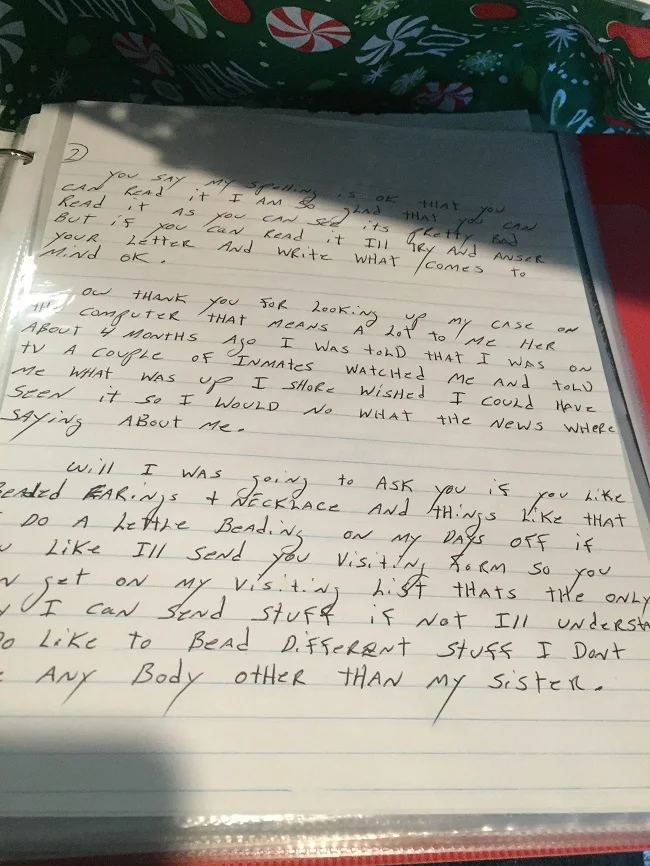 2
YOU SAY MY SPELLING is OK THAT YOU
CAN READ it I AM SO GLAD THAT YOU CAN
READ it AS YOU CAN SEE its PRETTY BAD
BUT if YOU CAN READ it Ill TRY AND ANSER
YOUR LETTER AND WRITE WHAT COMES TO
MIND OK.
OW THANK YOU FOR LOOKING UP MY CASE ON
THE COMPUTER THAT MEANS A LOT TO ME HER
ABOUT 4 MONTHS AGO I WAS TOLD THAT I WAS ON
TV A COUPLE OF INMATES WATCHED ME AND TOLD
ME WHAT WAS UP I SHORE WISHED I COULD HAVE
SEEN it SO I WOULD NO WHAT THE NEWS WHERE
SAYING ABOUT ME.
Will I WAS going to ASK you if you LIKE
BEADED EARINgs + NECKLACE AND THINgs LIKE THAT
DO A LETTLE BEADING ON MY DAYS OFF if
LIKE Ill SEND you VisiTiNg FORM SO you
get ON MY VisiTiNg LIST THATS THE ONLY
I CAN SEND STUFF if NOT Ill UNDERSTA
DO LIKE TO BEAD DIFFERENT STUFF I DONT
ANY BODY OTHER THAN MY SISTER.